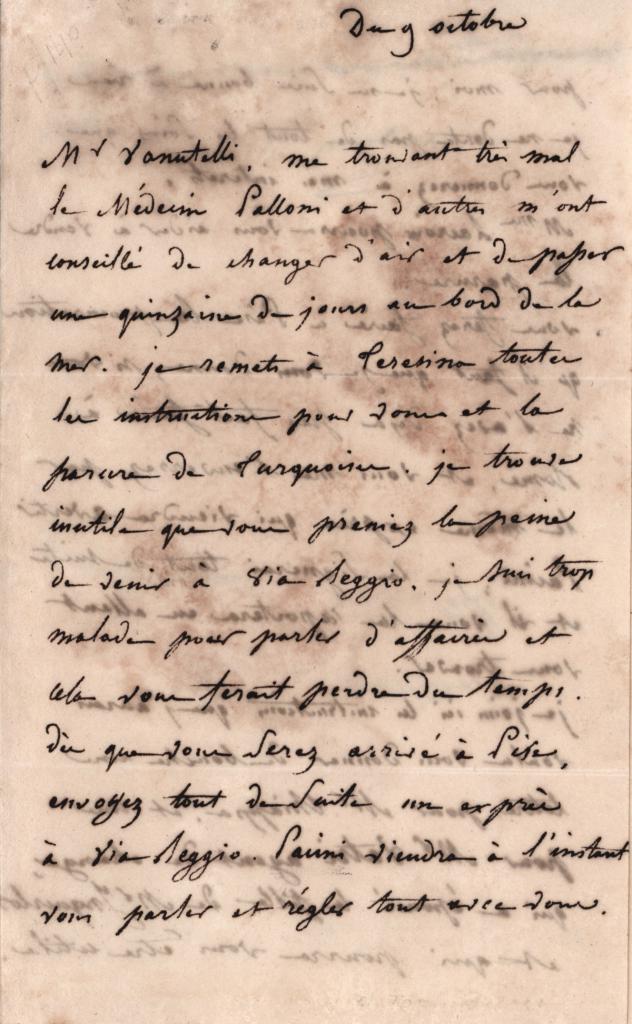 Du 9 octobre
Mr Vanutelli, me trouvant très mal
le Médecin Palloni et d'autres m'ont
conseillé de changer d'air et de passer
une quinzaine de jours au bord de la
mer. je remets à Teresina toutes
les instructions pour vous et la
parure de Turquoises. je trouve
inutile que vous preniez la peine
de venir à Via Reggio. je suis trop
malade pour parler d'affaires et
cela vous ferait perdre du temps.
dès que vous serez arrivé à Pise,
envoyez tout de suite un exprès
à Via Reggio. Pacini viendra à l'instant
vous parler et régler tout avec vous.